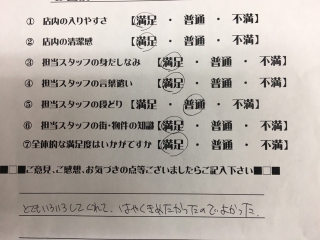 ① 店内の入りやすさ 【満足 ・ 普通 ・ 不満】
② 店内の清潔感 【満足 ・ 普通 ・ 不満】
③ 担当スタッフの身だしなみ 【満足 ・ 普通 ・ 不満】
④ 担当スタッフの言葉遣い 【満足 ・ 普通 ・ 不満】
⑤ 担当スタッフの段どり 【満足 ・ 普通 ・ 不満】
⑥ 担当スタッフの街・物件の知識【満足 ・ 普通 ・ 不満】
⑦全体的な満足度はいかがですか【満足 ・ 普通 ・ 不満】
■□■ご意見、ご感想、お気づきの点等ございましたらご記入下さい■□■
とてもいろいろしてくれて、はやくきめたかったのでよかった。